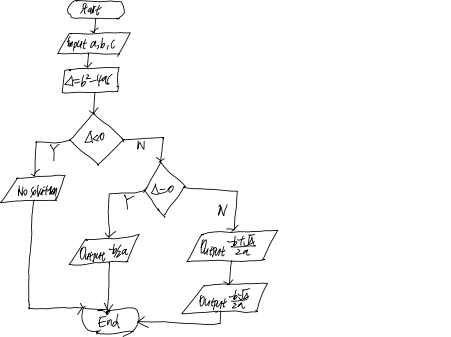 Start
Input a,b,c
Δ=b²-4ac
Δ<0
Y
N
No solution
Δ=0
Y
N
Output -b/2a
Output -b+√Δ/2a
Output -b-√Δ/2a
End